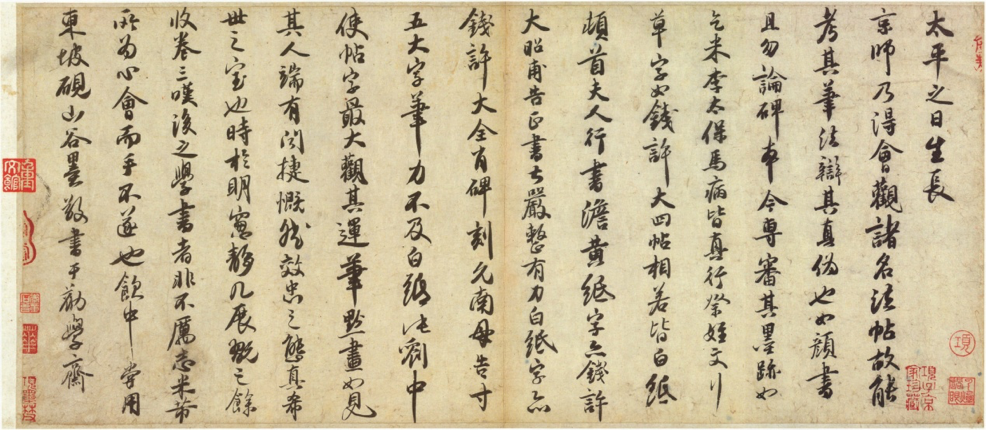 太平之日生長
京師乃得會觀諸名法帖故能
考其筆法辯其真偽也如顏書
且勿論碑本今專審其墨跡如
乞米李太保馬病皆真行祭姪文行
草字如錢許大四帖相若皆白紙
頓首夫人行書澹黃紙字亦錢許
大昭甫告正書嚴整有力白紙字亦
錢許大全有碑刻允南母告寸
五大字筆力不及白絹劉中
使帖字最大觀其運筆點畫如見
其人端有聞捷慨然效忠之態真希
世之寶也時於明窗靜几展玩之餘
收卷三嘆後之學書者非不厲志米芾
所為心會而手不逮也飲中嘗用
東坡硯山谷墨敬書于勤學齋
項子京家珍藏